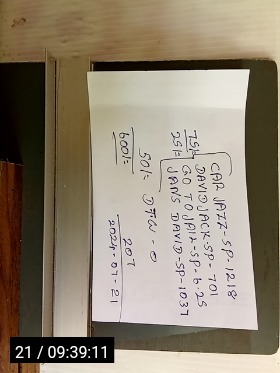 CAR JAZZ-SP-1218
DAVID JACK-SP-701
GO TO JAIL-SP-6.25
JANS DAVID-SP-1037
75/-
25/-
50/- DTW-0
600/-
2024-07-21
21 / 09:39:11